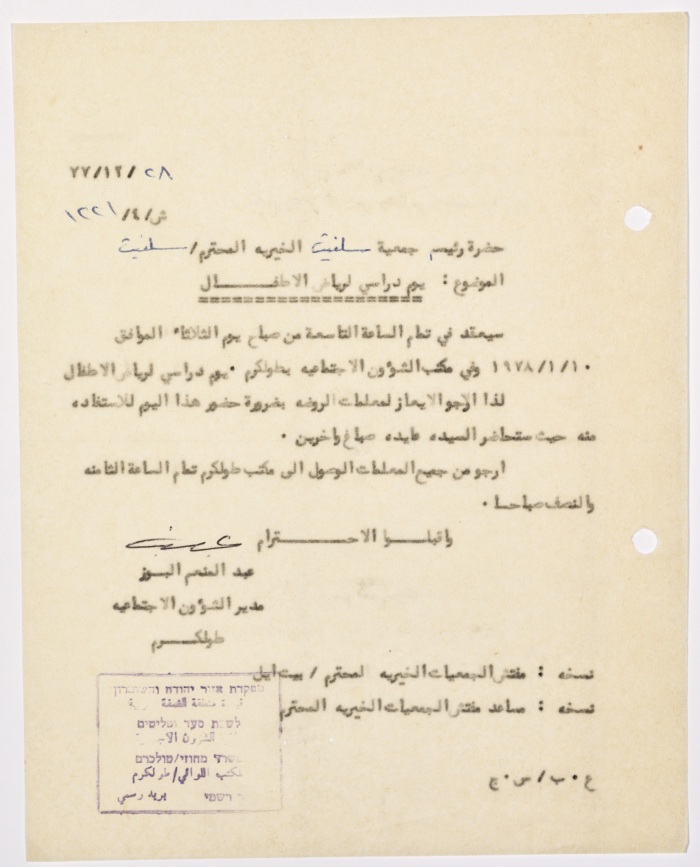 ٧٧/١٢/٢٨
ش/٤/١٢٢١
حضرة رئيس جمعية سلفيت الخيريه المحترم/سلفيت
الموضوع : يوم دراسي لرياض الاطفـــــال
سيعقد في تمام الساعة التاسعة من صباح يوم الثلاثاء الموافق
١٩٧٨/١/١٠ وفي مكتب الشؤون الاجتماعيه بطولكرم ٠يوم دراسي لرياض الاطفال
لذا ارجو الايعاز لمعلمات الروضه بضرورة حضور هذا اليوم للاستفاده
منه حيث ستحاضر السيده عايده صباغ واخرين ٠
ارجو من جميع المعلمات الوصول الى مكتب طولكرم تمام الساعة الثامنه
والنصف صباحا ٠
واقبلـــوا الاحـــــترام
عبد المنعم البـوز
مدير الشؤون الاجتماعيه
طولكـــرم
نسخه : مفتش الجمعيات الخيريه المحترم / بيت ايل
نسخه : مساعد مفتش الجمعيات الخيريه المحترم
מפקדת אזור יהודה והשומרון
منطقة الضفة
לשכת סעד ופליטים
الشؤون
מחוזי/טולכרם
مكتب اللوائي/طولكرم
בريد رسمي
ع ٠ ب/س ٠ ج